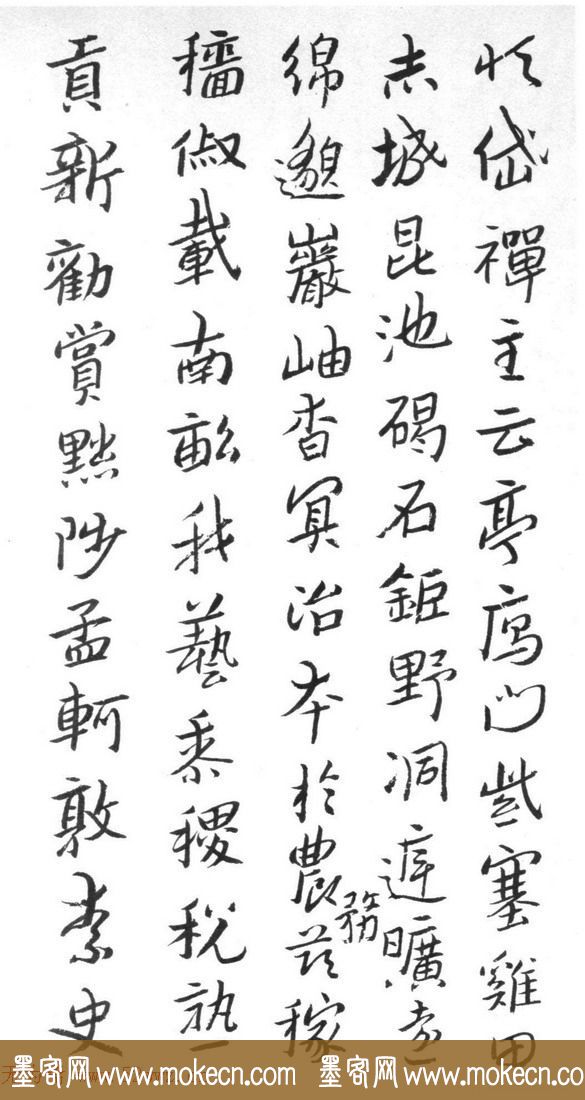 恒岱禪主云亭鴈門紫塞雞田
赤城昆池碣石鉅野洞庭曠遠
綿邈巖岫杳冥治本於農務茲稼
穡俶載南畝我藝黍稷稅熟
貢新勸賞黜陟孟軻敦素史
墨客网 www.mokecn.com 墨客网 www.mokecn.com